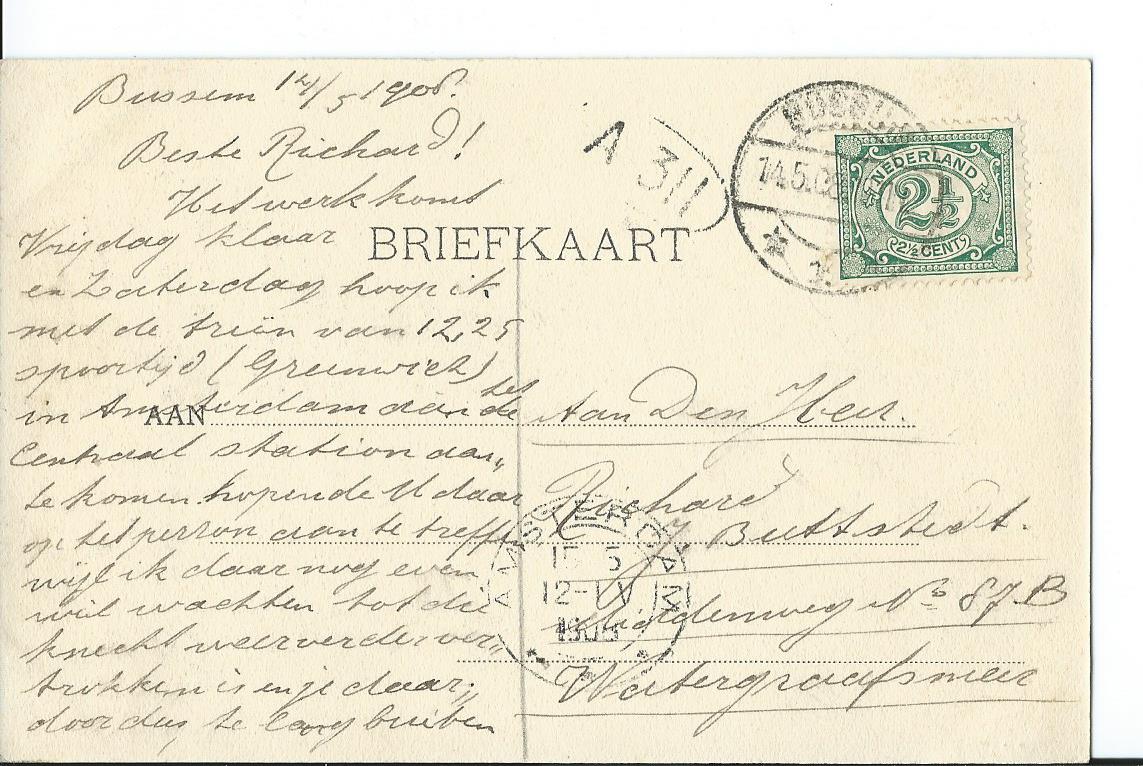 Bussem 14/5 1908.
Beste Richard!
Het werk komt
Vrijdag klaar
en Zaterdag hoop ik
met de trein van 12,25
spoortijd (Greenwich)
in Amsterdam aan het
Centraal station aan„
te komen. hopende U daar
op het perron aan te treffen
wijl ik daar nog even
wil wachten tot de
knecht weer verder ver„
trokken is en je daar„
door dus te lang buiten
BRIEFKAART
AAN
A 311
BUSSUM
14.5.08
NEDERLAND
2½
2½ CENT
Aan Den Heer.
Richard
Buttstedt.
N° 87 B
Watergraafsmeer
AMSTERDAM
15 5
12-1V
1908